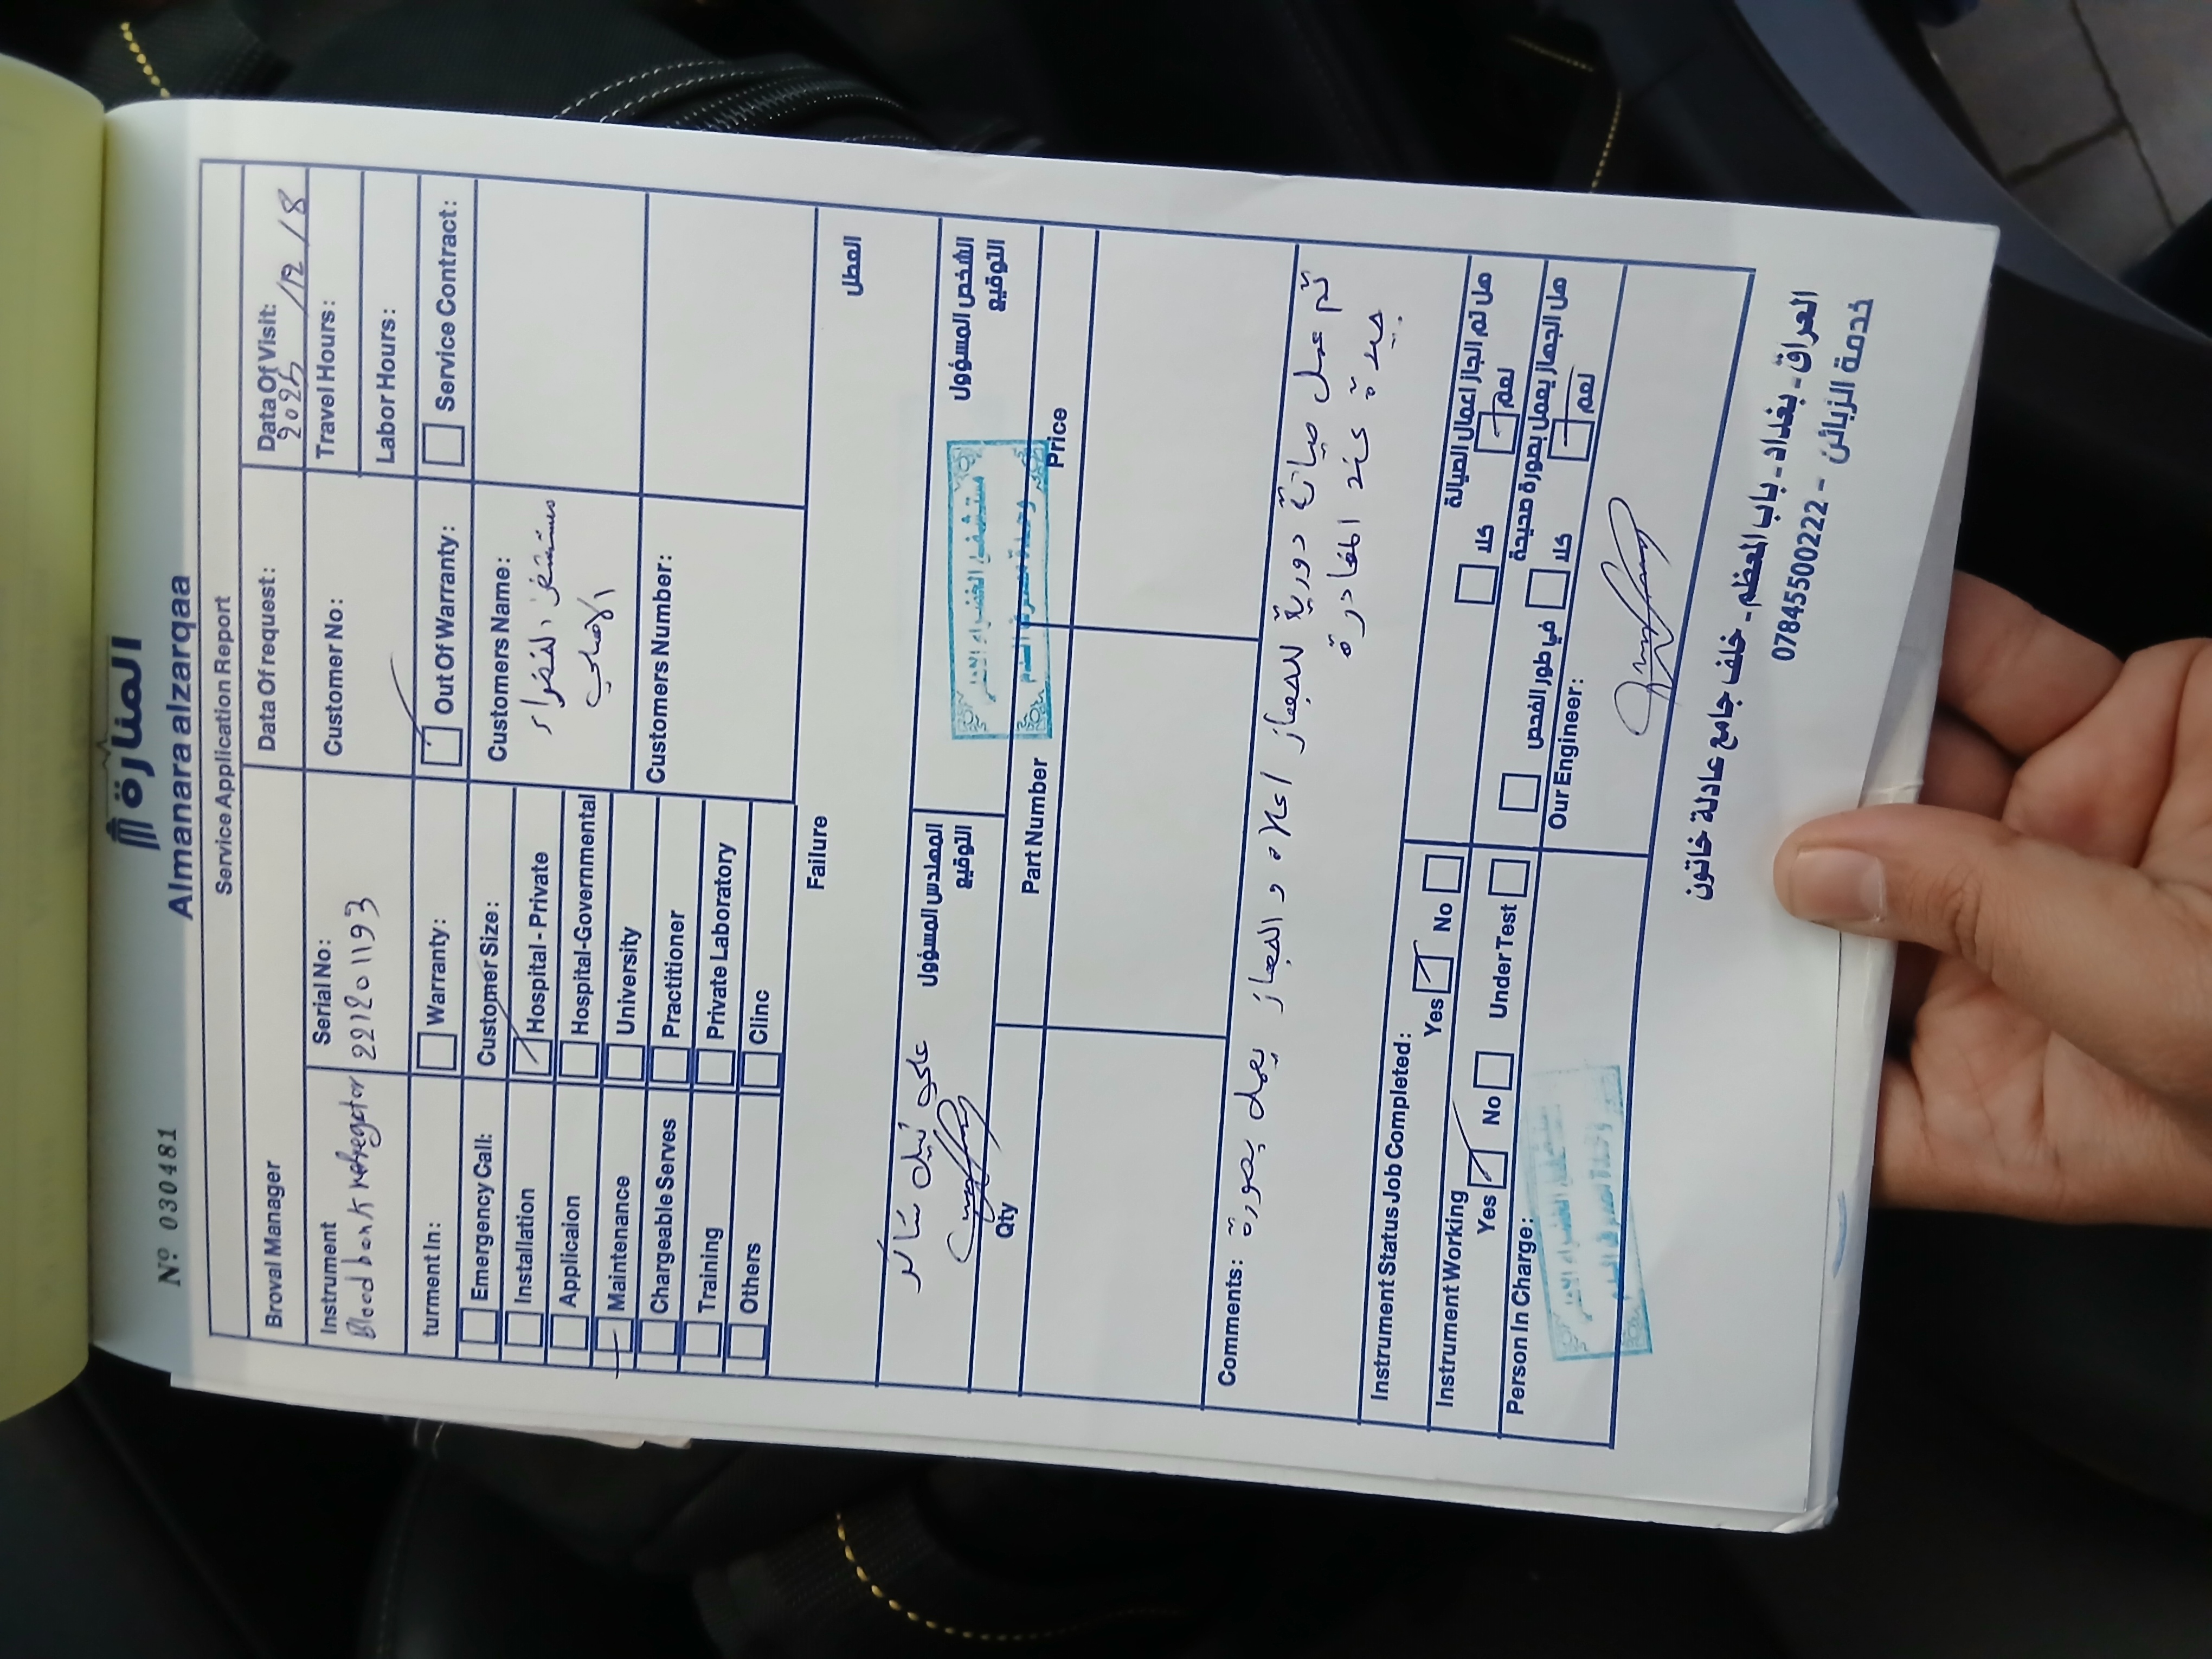 المنارة
Almanara alzarqaa
Nº 030481
Service Application Report
Broval Manager
Data Of request:
Data Of Visit:
2025/12/8
Instrument
Blood bank refregetor
Serial No:
221201193
Customer No:
Travel Hours:
Labor Hours:
turment In:
Warranty:
Out Of Warranty:
Service Contract:
Emergency Call:
Installation
Applicaion
Maintenance
Chargeable Serves
Training
Others
Customer Size:
Hospital - Private
Hospital-Governmental
University
Practitioner
Private Laboratory
Clinc
Customers Name:
مستشفى الخضراء
الاهلي
Customers Number:
Failure
العطل
المهندس المسؤول
علي نبيل شاكر
التوقيع
الشخص المسؤول
التوقيع
مستشفى الخضراء الاهلي
Qty
Part Number
Price
Comments:
تم عمل صيانة دورية للجهاز اعلاه و الجهاز يعمل بصورة
جيدة عند المغادرة
Instrument Status Job Completed:
Yes
No
هل تم انجاز اعمال الصيانة
كلا
نعم
Instrument Working
Yes
No
Under Test
هل الجهاز يعمل بصورة صحيحة
في طور الفحص
كلا
نعم
Person In Charge:
مستشفى الخضراء الاهلي
Our Engineer:
العراق - بغداد - باب المعظم - خلف جامع عادلة خاتون
خدمة الزبائن - 07845500222